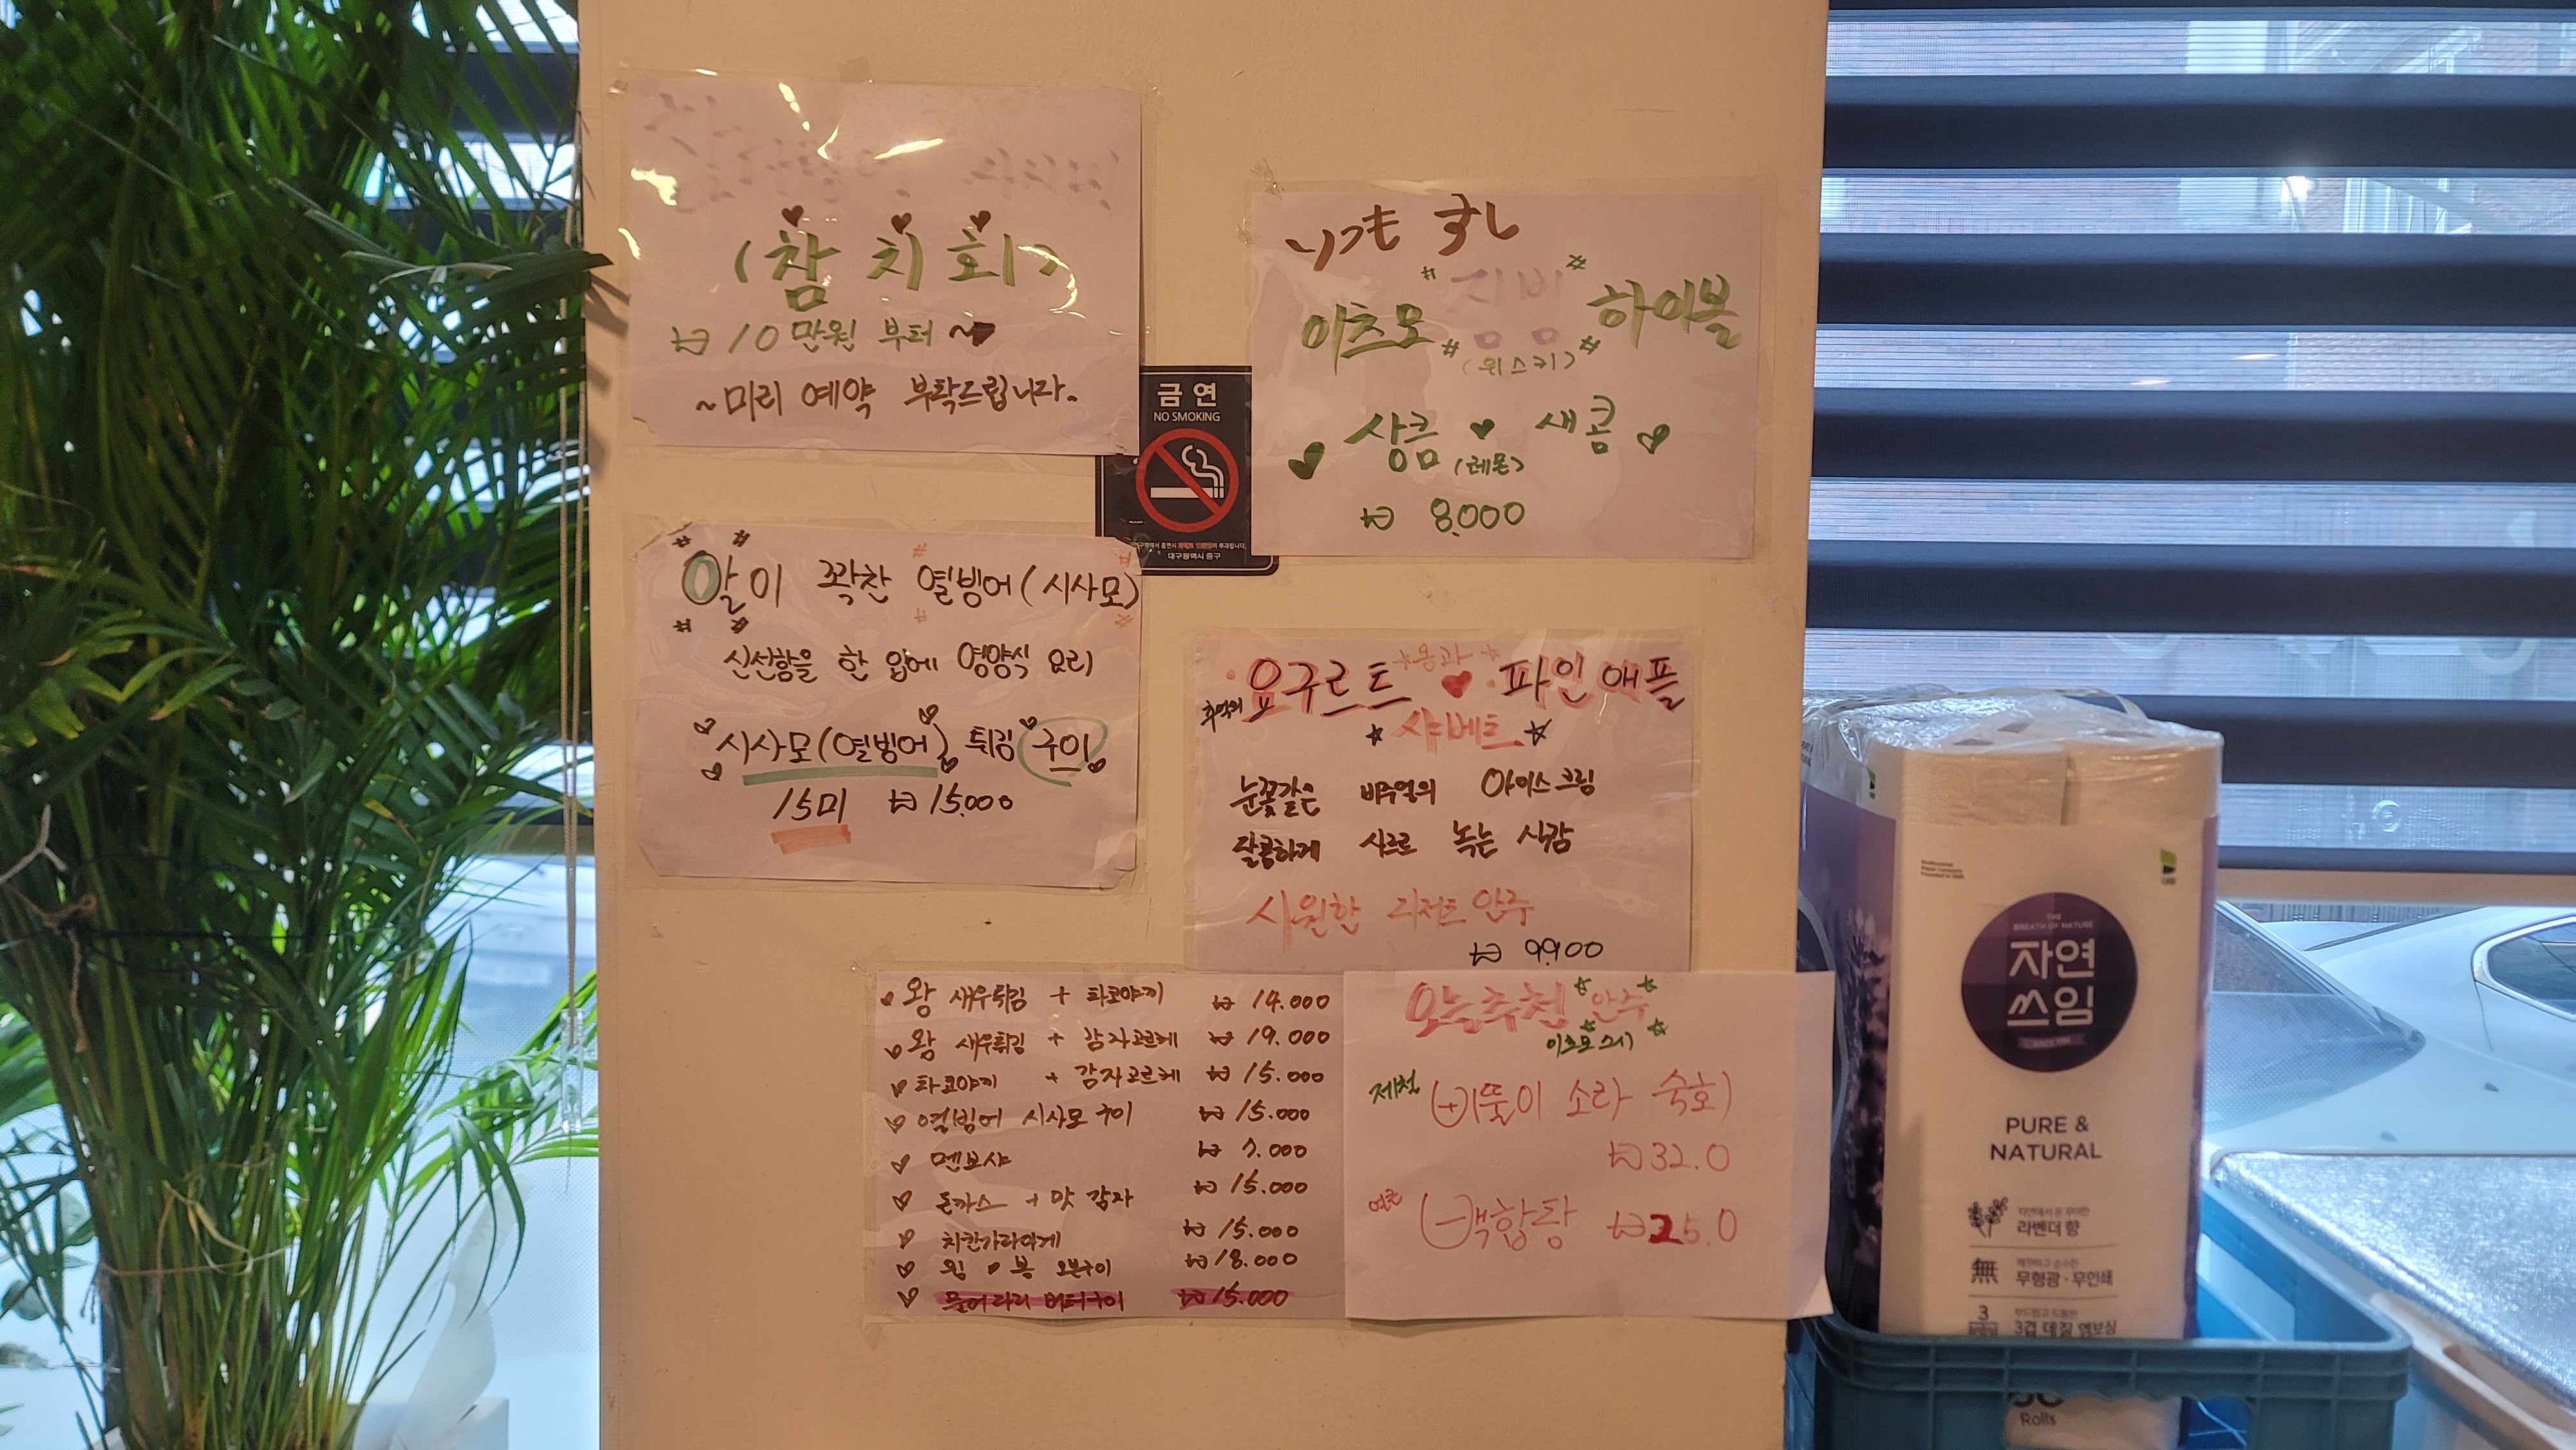 (참치회)
₩ 10만원 부터 ~
~미리 예약 부탁드립니다.
금연
NO SMOKING
대구광역시 중구
いつも すし
이츠모 # 짐빔 # 하이볼
(위스키)
상큼 (레몬) 새콤
₩ 8,000
# 알 # 이 꽉찬 # 열빙어(시사모) #
신선함을 한 입에 영양식 요리
시사모(열빙어) 튀김 구이
15미 ₩ 15,000
추억의 요구르트 *용과* 파인애플
샤베트
눈꽃같은 비주얼의 아이스크림
달콤하게 사르르 녹는 식감
시원한 디저트 안주
₩ 9,900
왕 새우튀김 + 타코야끼 ₩ 14.000
왕 새우튀김 + 감자고르케 ₩ 19.000
타코야끼 + 감자고르케 ₩ 15.000
열빙어 시사모 구이 ₩ 15.000
멘보샤 ₩ 7.000
돈까스 + 맛 감자 ₩ 15.000
치칸가라아게 ₩ 15.000
윙 봉 오븐구이 ₩ 18.000
문어다리 버터구이 ₩ 15.000
오늘추천 안주
이츠모스시
제철 (삐뚤이 소라 숙회)
₩ 32.0
얼큰 백합탕 ₩ 25.0
THE
BREATH OF NATURE
자연
쓰임
PURE &
NATURAL
라벤더 향
無
무형광·무인쇄
3
3겹 데질 엠보싱
Rolls